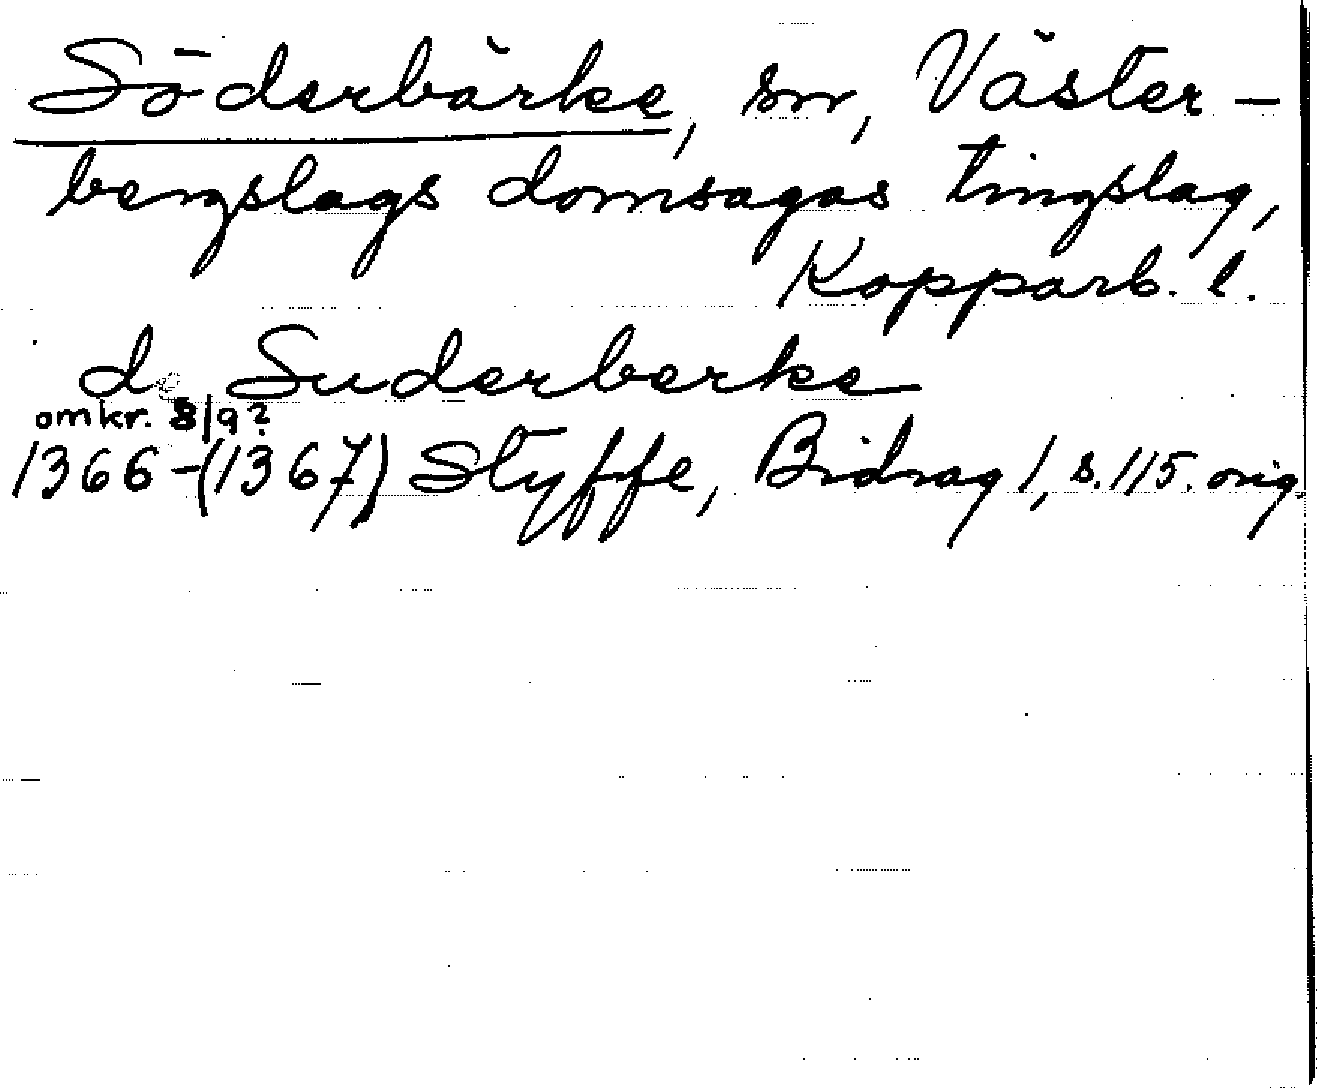 Söderbärke, sn, Väster-
bergslags domsagas tingslag,
Kopparb. l.
de Suderberke
omkr. 8/9?
1366-(1367) Styffe, Bidrag 1, s. 115. orig.